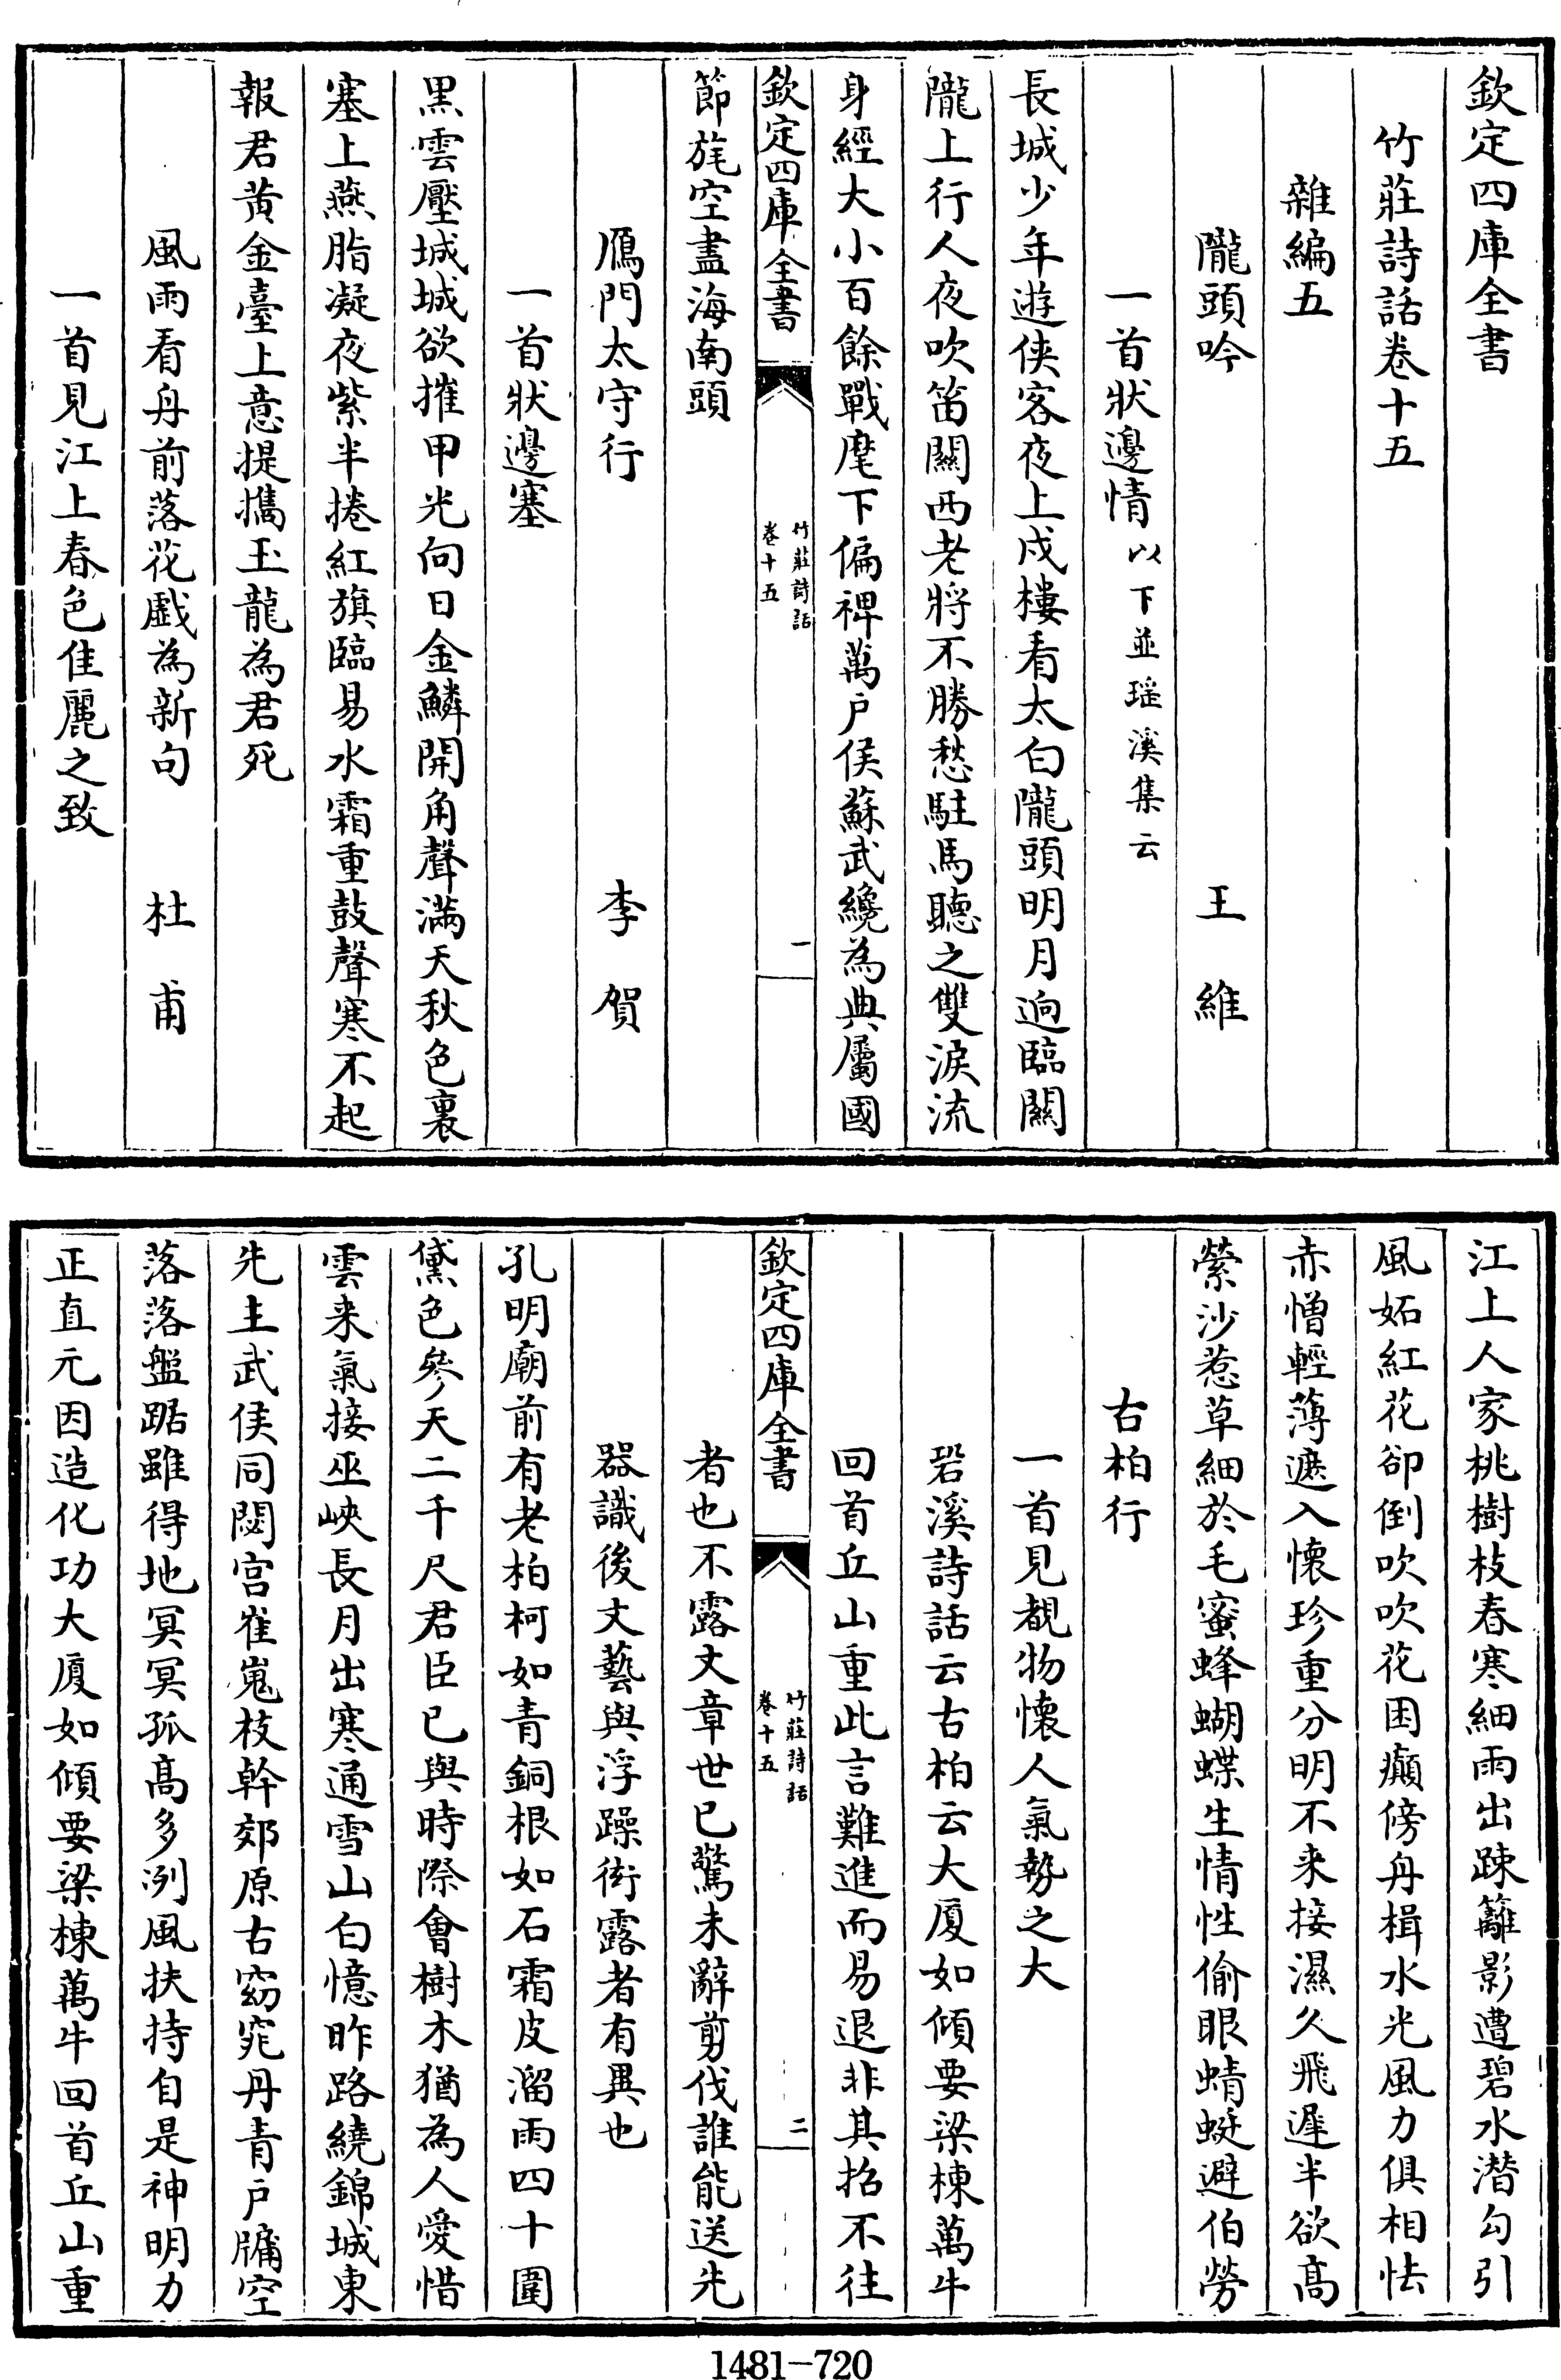 欽定四庫全書
竹莊詩話卷十五
雜編五
隴頭吟 王維
一首狀邊情以下並瑶溪集云
長城少年遊俠客夜上戍樓看太白隴頭明月逈臨關
隴上行人夜吹笛關西老將不勝愁駐馬聽之雙淚流
身經大小百餘戰麾下偏裨萬户侯蘇武纔為典屬國
欽定四庫全書
竹莊詩話
卷十五
一
節旄空盡海南頭
鴈門太守行 李賀
一首狀邊塞
黑雲壓城城欲摧甲光向日金鱗開角聲滿天秋色裏
塞上燕脂凝夜紫半捲紅旗臨易水霜重鼓聲寒不起
報君黄金臺上意提攜玉龍為君死
風雨看舟前落花戲為新句 杜甫
一首見江上春色佳麗之致
江上人家桃樹枝春寒細雨出踈籬影遭碧水潛勾引
風妬紅花卻倒吹吹花困癲傍舟楫水光風力俱相怯
赤憎輕薄遮入懷珍重分明不来接濕久飛遲半欲髙
縈沙惹草細於毛蜜蜂蝴蝶生情性偷眼蜻蜓避伯勞
古柏行
一首見覩物懷人氣勢之大
䂬溪詩話云古柏云大厦如傾要梁棟萬牛
回首丘山重此言難進而易退非其招不往
欽定四庫全書
竹莊詩話
卷十五
二
者也不露文章世已驚未辭剪伐誰能送先
器識後文藝與浮躁衒露者有異也
孔明廟前有老柏柯如青銅根如石霜皮溜雨四十圍
黛色參天二千尺君臣已與時際會樹木猶為人愛惜
雲来氣接巫峽長月出寒通雪山白憶昨路繞錦城東
先主武侯同閟宫崔嵬枝幹郊原古窈窕丹青户牖空
落落盤踞雖得地冥冥孤髙多洌風扶持自是神明力
正直元因造化功大厦如傾要梁棟萬牛回首丘山重
1481-720